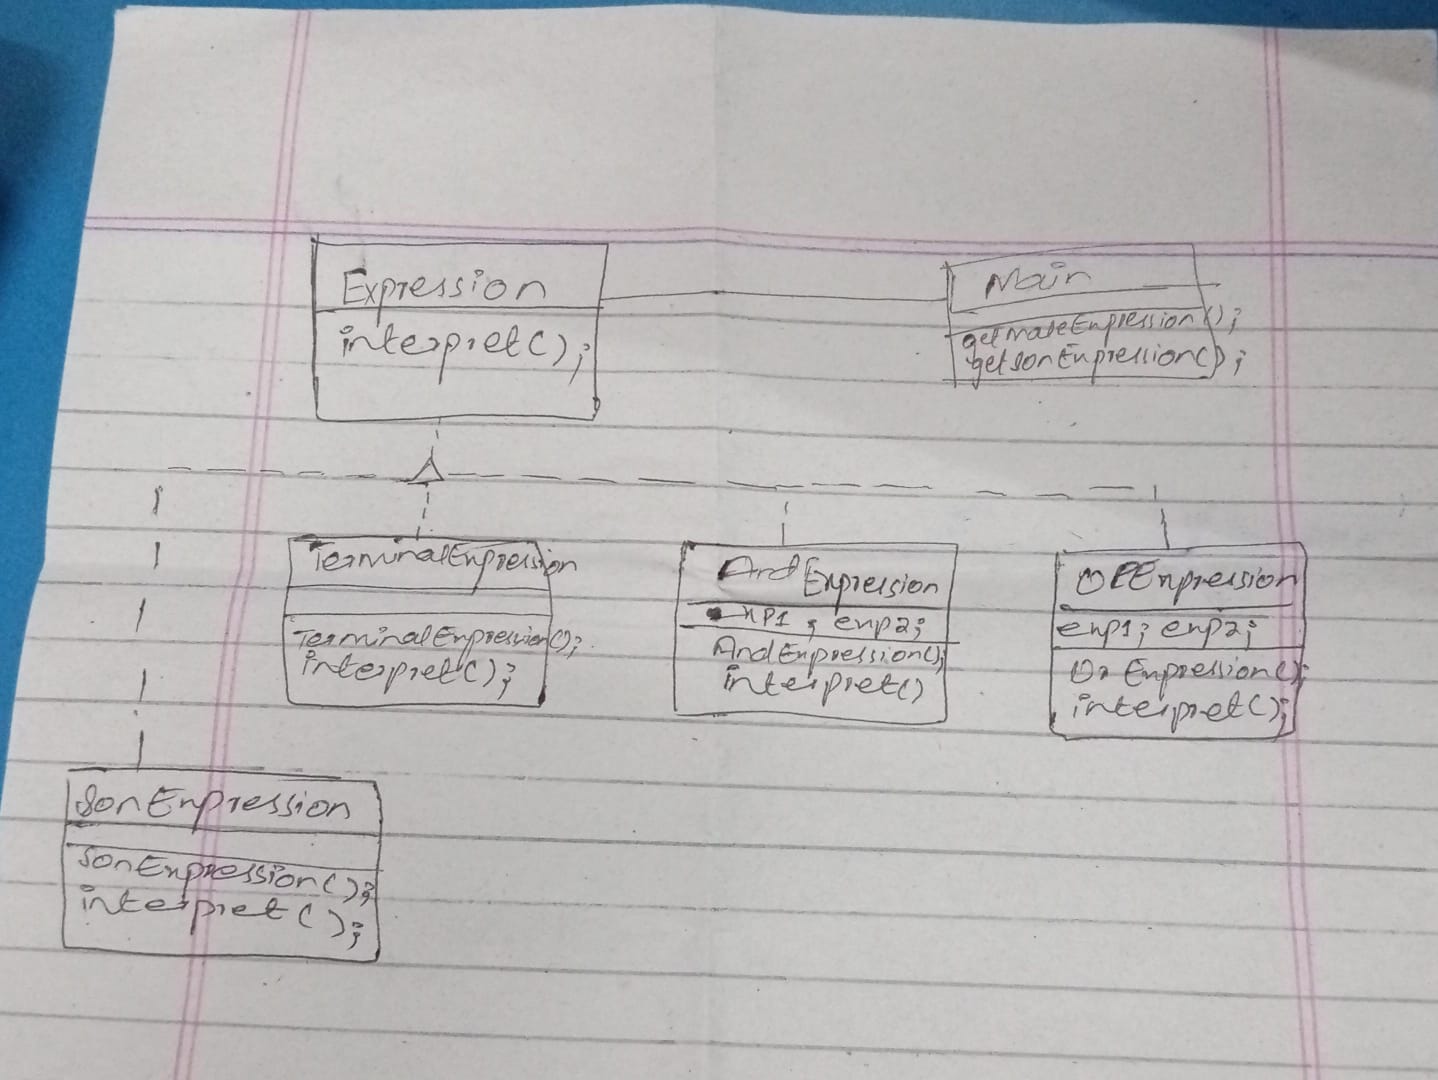 Expression
interpret();
Main
getmaleExpression();
getsonExpression();
TerminalExpression
TerminalExpression();
interpret();
AndExpression
exp2;
AndExpression();
interpret()
ORExpression
exp1; exp2;
Or Expression();
interpret();
SonExpression
SonExpression();
interpret();